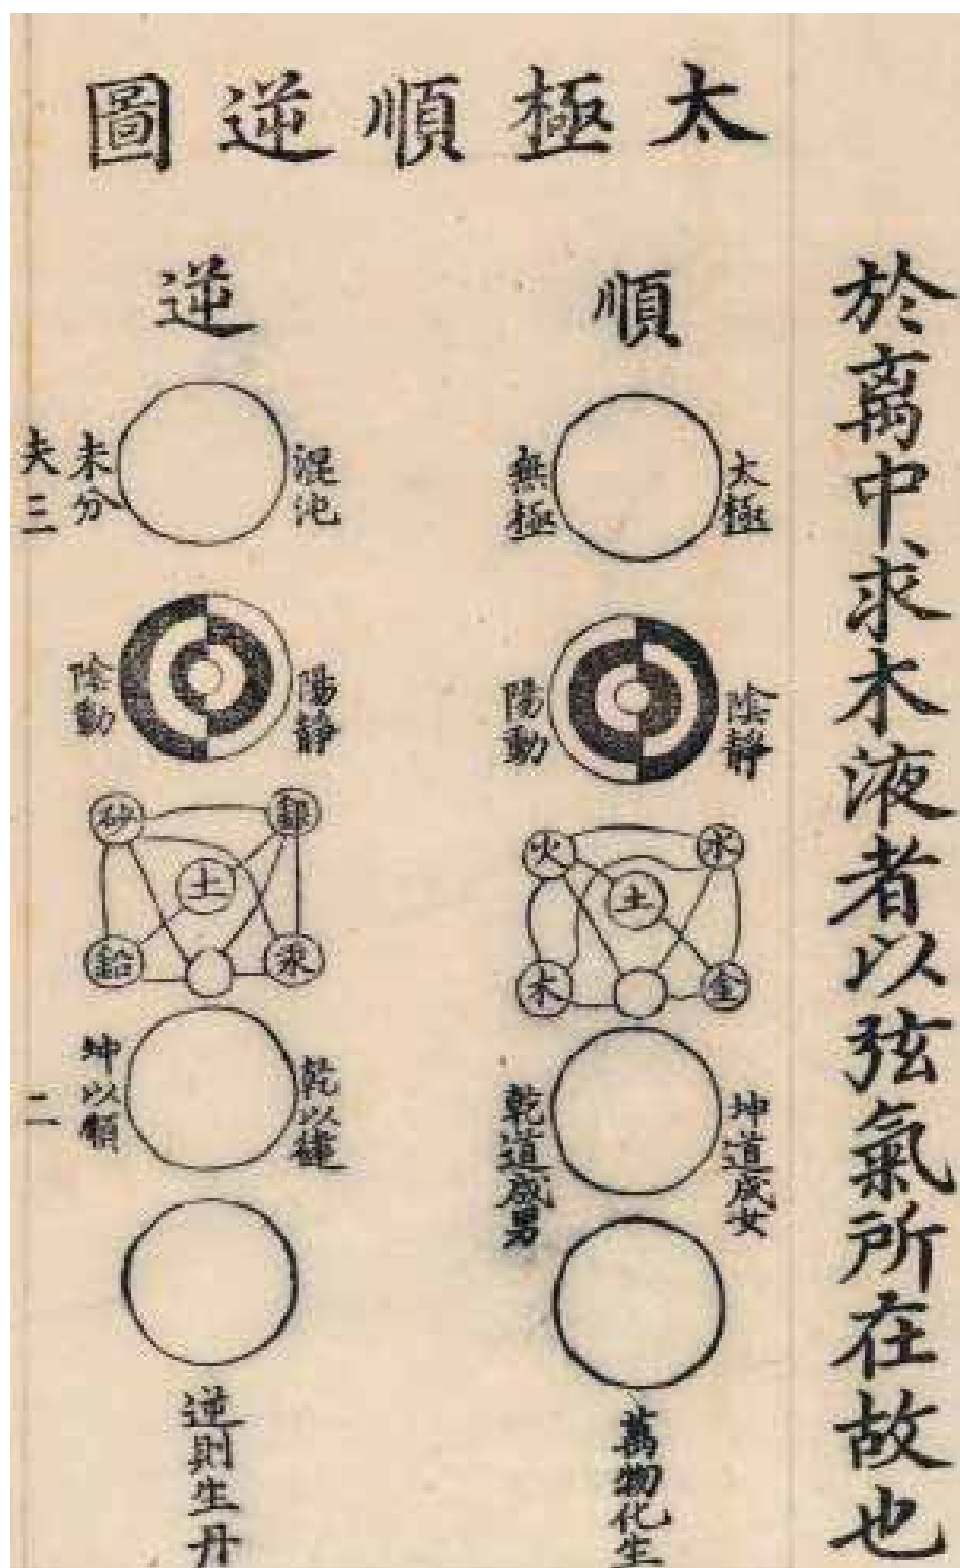 於离中求木液者以弦氣所在故也
太極順逆圖
順
太極
無極
陰静
陽動
水
火
土
金
木
坤道成女
乾道成男
萬物化生
逆
混沌
未分
夫三
陽静
陰動
銀
砂
土
汞
鉛
乾以健
坤以順
二
逆則生丹